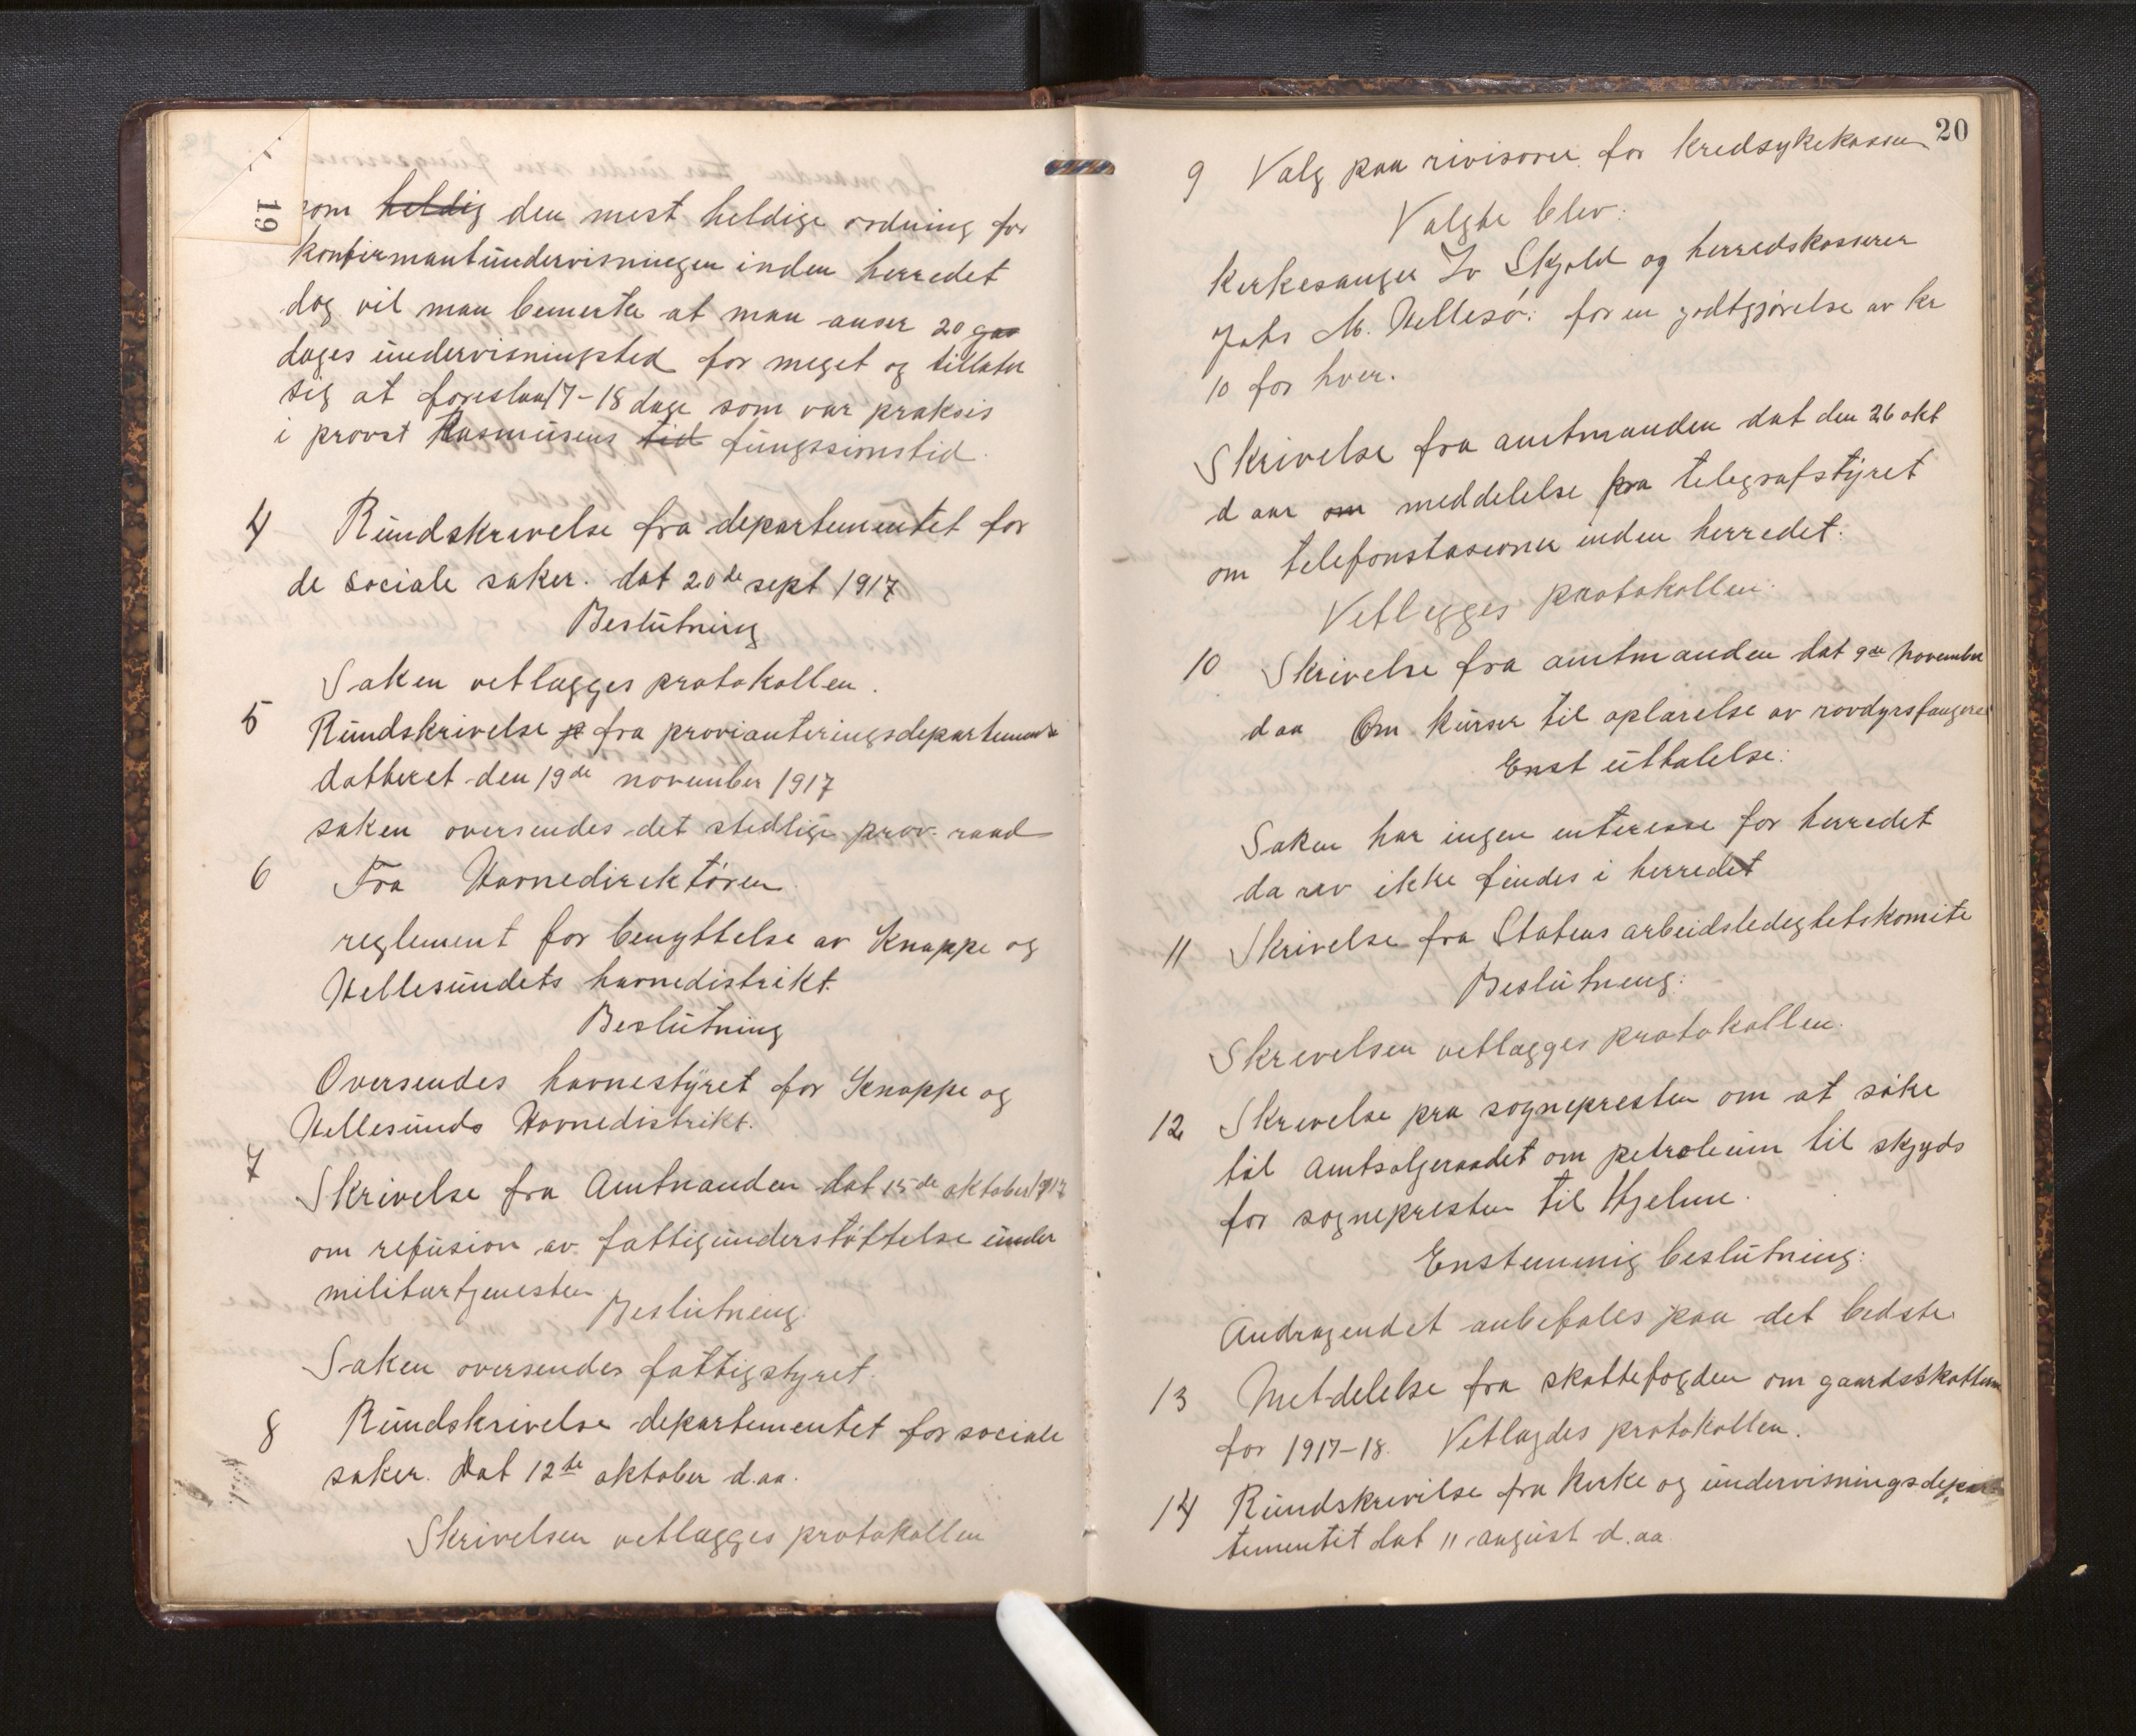 19
som heldig den mest heldige ordning for
konfirmantundervisningen inden herredet
dog vil man bemerke at man anser 20 gar
dages undervisningsted for meget og tillater
sig at foreslaa 17-18 dage som var praksis
i provst Rasmusens tid fungssionstid.
4 Rundskrivelse fra departementet for
de sociale saker. dat 20de sept 1917
Beslutning
Saken vetlægges protokollen.
5 Rundskrivelse fra provianteringsdepartement
datteret den 19de november 1917
saken oversendes det stedlige prov. raad
6 Fra Havnedirektøren
reglement for benyttelse av Knappe og
Hellesundets havnedistrikt.
Beslutning
Oversendes havnestyret for Knappe og
Hellesunds Havnedistrikt.
7 Skrivelse fra Amtmanden dat 15de oktober 1917
om refusion av fattigunderstøttelse under
militærtjenesten
Beslutning:
Saken oversendes fattigstyret.
8 Rundskrivelse departementet for sociale
saker. Dat 12te oktober d.aa.
Skrivelsen vetlægges protokollen
20
9 Valg paa rivisorer for kredsykekassen
Valgte blev:
Kirkesanger Iv Skjold og herredskasserer
Johs M. Hellesø: for en godtgjørelse av kr
10 for hver.
Skrivelse fra amtmanden dat den 26 okt
d aar om meddelelse fra telegrafstyret
om telefonstasioner inden herredet.
Vetlegges protokollen:
10 Skrivelse fra amtmanden dat 9de november
d aa Om kurser til oplærelse av rovdyrsfangere
Enst uttalelse:
Saken har ingen interesse for herredet
da rev ikke findes i herredet
11 Skrivelse fra Statens arbeidsledighetskomite
Beslutning:
Skrivelsen vetlægges protokollen.
12 Skrivelse fra sognepresten om at søke
til Amtsoljeraadet om petroleum til skyds
for sognepresten til Hjelme.
Enstemmig beslutning:
Andragendet anbefales paa det bedste
13 Met-delelse fra skattefogden om gaardsskatten
for 1917-18. Vetlagdes protokollen.
14 Rundskrivelse fra kirke og undervisningsdepar
tementet dat 11 august d.aa